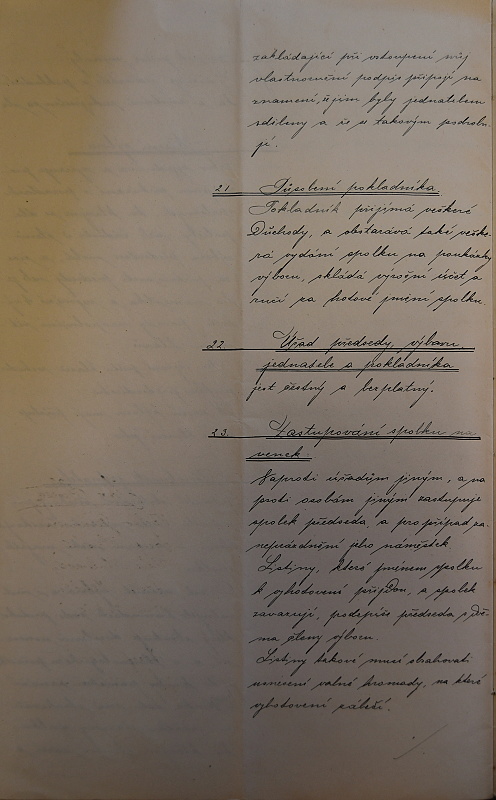 zakládající při vstoupení svůj
vlastnoruční podpis připojí na
znamení, že jim byly jednatelem
sděleny a že se takovým podrobu-
jí.
21 Působení pokladníka.
Pokladník přijímá veškeré
Důchody, a obstarává také veške-
rá vydání spolku na poukázky
výboru, skládá výroční účet a
ručí za hotové jmění spolku.
22 Úřad předsedy, výboru,
jednatele a pokladníka
jest čestný a bezplatný.
23. Zastupování spolku na
venek.
Naproti úřadům jiným, a na
proti osobám jiným zastupuje
spolek předseda, a pro případ za-
neprázdnění jeho náměstek.
Listiny, které jménem spolku
k vyhotovení přijdou, a spolek
zavazují, podepíše předseda s dvě-
ma členy výboru.
Listiny takové musí obsahovati
usnesení valné hromady, na které
vyhotovení záleží.